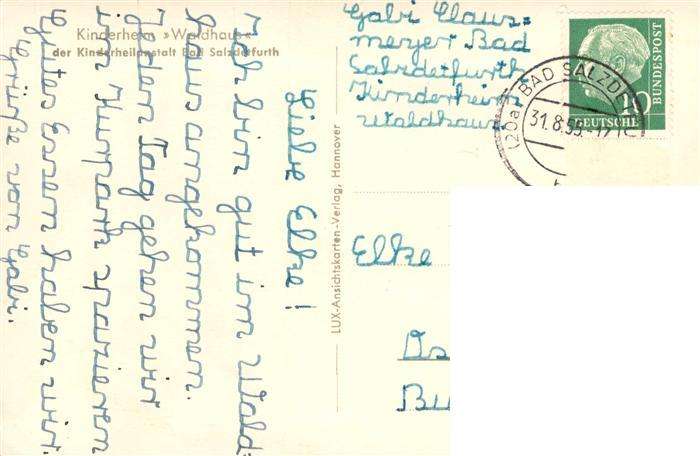 Kinderheim »Waldhaus«
der Kinderheilanstalt Bad Salzdetfurth
Liebe Elke!
Ich bin gut im Wald-
haus angekommen.
Jeden Tag gehen wir
im Kurpark spazieren.
Gutes Essen haben wir.
Grüße von Gabi.
LUX-Ansichtskarten-Verlag, Hannover
Gabi Claus=
meyer Bad
Salzdetfurth
Kinderheim
Waldhaus
(20a) BAD SALZD
31.8.55.-17
10
DEUTSCHE
BUNDESPOST
Elke